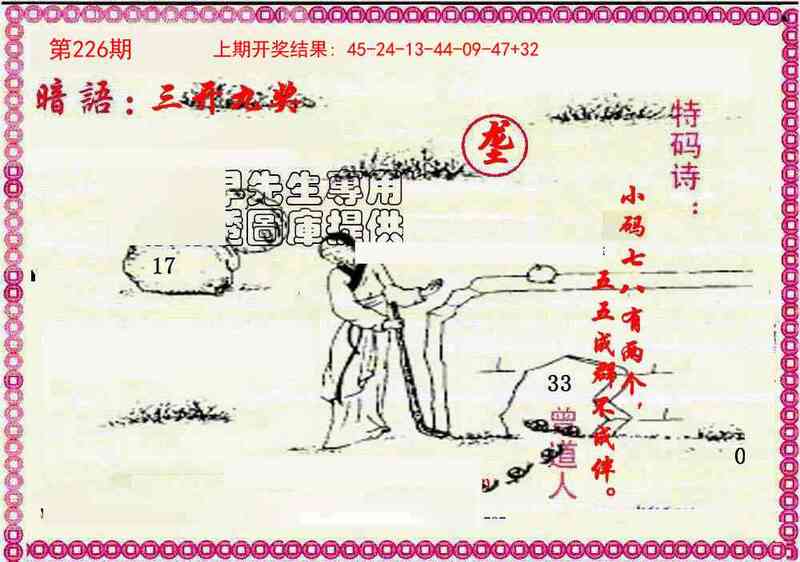 第226期
上期开奖结果：45-24-13-44-09-47+32
暗語：三开九奖
垄
特码诗：
小码七八有两个，
五五成群不成伴。
先生專用
圖庫提供
17
33
曾道人
0